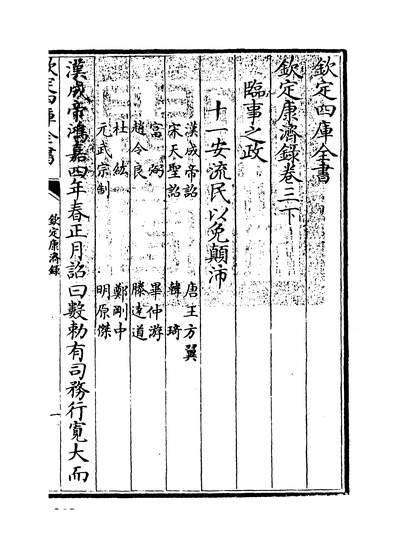 欽定四庫全書
欽定康濟錄卷三下
臨事之政
十一安流民以免顛沛
漢成帝詔　唐王方翼
宋天聖詔　韓琦
富弼　畢仲游
趙令良　滕達道
杜紘　鄭剛中
元武宗制　明原傑
漢成帝鴻嘉四年春正月詔曰數勅有司務行寬大而
欽定四庫全書
欽定康濟錄
一